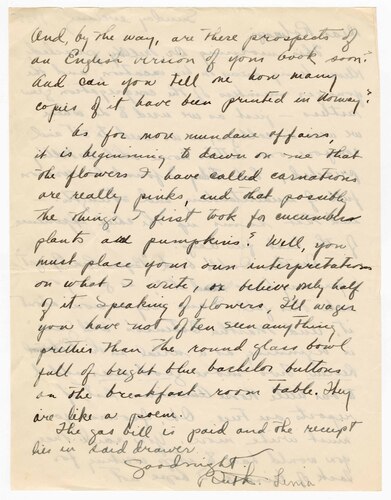 And, by the way, are there prospects of
an English version of your book soon?
And can you tell me how many
copies of it have been printed in Norway?
As for more mundane affairs,
it is beginning to dawn on me that
the flowers I have called carnations
are really pinks, and that possibly
the things I first took for cucumber
plants are pumpkins? Well, you
must place your own interpretations
on what I write, or believe only half
of it. Speaking of flowers, I'll wager
you have not often seen anything
prettier than the round glass bowl
full of bright blue bachelor buttons
on the breakfast room table. They
are like a poem.
The gas bill is paid and the receipt
lies in said drawer.
Goodnight,